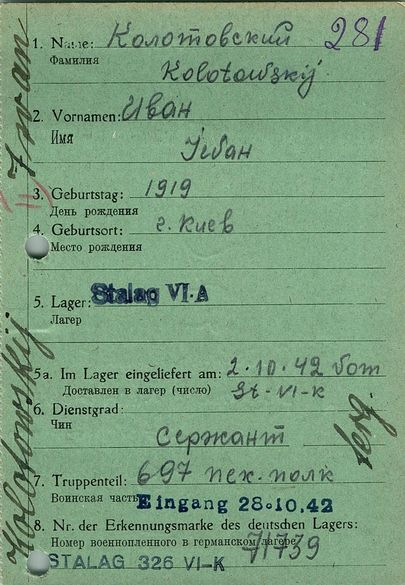 281
1. Name: Колотовский
Фамилия
Kolotowskij
2. Vornamen: Иван
Имя
Iван
3. Geburtstag: 1919
День рождения
4. Geburtsort: г. Киев
Место рождения
5. Lager: Stalag VI-A
Лагер
5a. Im Lager eingeliefert am: 2.10.42 vom
Доставлен в лагер (число) St-VI-K
6. Dienstgrad:
Чин
Сержант
7. Truppenteil: 697 пех. полк
Воинская часть
Eingang 28.10.42
8. Nr. der Erkennungsmarke des deutschen Lagers:
Номер военнопленного в германском лагере: 71739
STALAG 326 VI-K
Kolotowskij Iwan